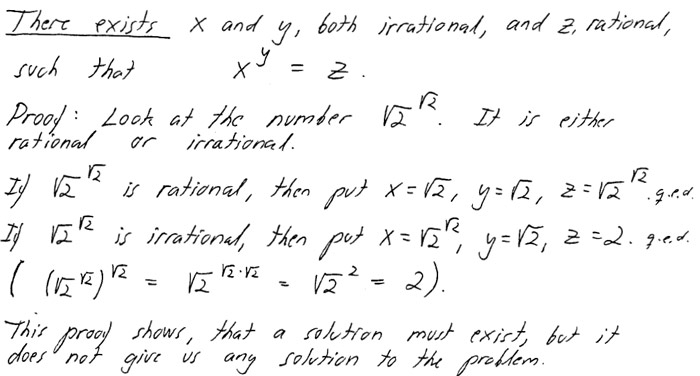 There exists x and y, both irrational, and z, rational,
such that x^y = z.
Proof: Look at the number √2^√2. It is either
rational or irrational.
If √2^√2 is rational, then put x=√2, y=√2, z=√2^√2. q.e.d.
If √2^√2 is irrational, then put x=√2^√2, y=√2, z=2. q.e.d.
( (√2^√2)^√2 = √2^√2·√2 = √2^2 = 2).
This proof shows, that a solution must exist, but it
does not give us any solution to the problem.